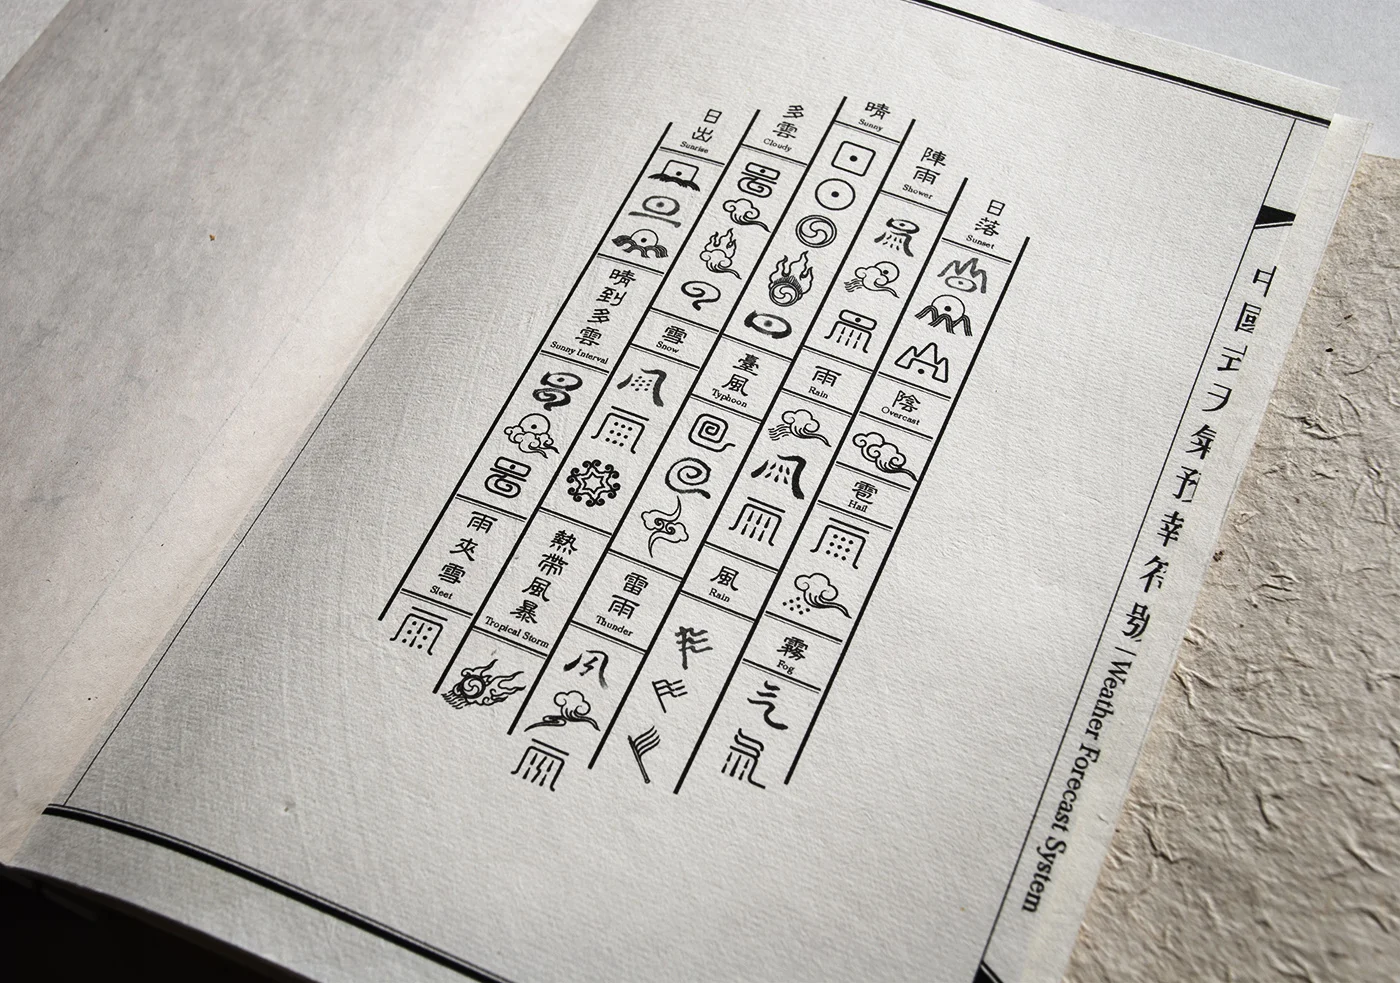 日出
Sunrise
晴到多雲
Sunny Interval
雨夾雪
Sleet
多雲
Cloudy
雪
Snow
熱帶風暴
Tropical Storm
晴
Sunny
臺風
Typhoon
雷雨
Thunder
陣雨
Shower
雨
Rain
風
Rain
日落
Sunset
陰
Overcast
雹
Hail
霧
Fog
Weather Forecast System